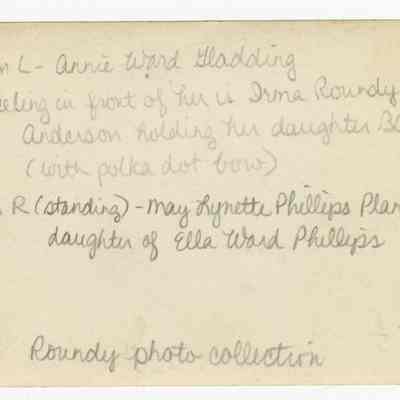 n L - Annie Ward Gladding
eeling in front of her is Irma Roundy
Anderson holding her daughter B
(with polka dot bow)
R (standing) - May Lynette Phillips Plan
daughter of Ella Ward Phillips
Roundy photo collection